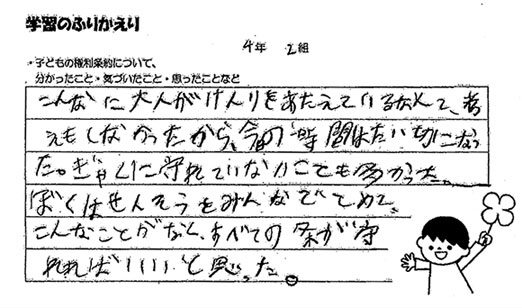 学習のふりかえり
4年 2組
・子どもの権利条約について、
分かったこと・気づいたこと・思ったことなど
こんなに大人がけんりをあたえているなんて、考
えもしなかったから、今の時間はたい切になっ
た。ぎゃくに守れていないことも多かった。
ぼくはせんそうをみんなでとめて、
こんなことがなく、すべての条が守
れればいいいと思った。